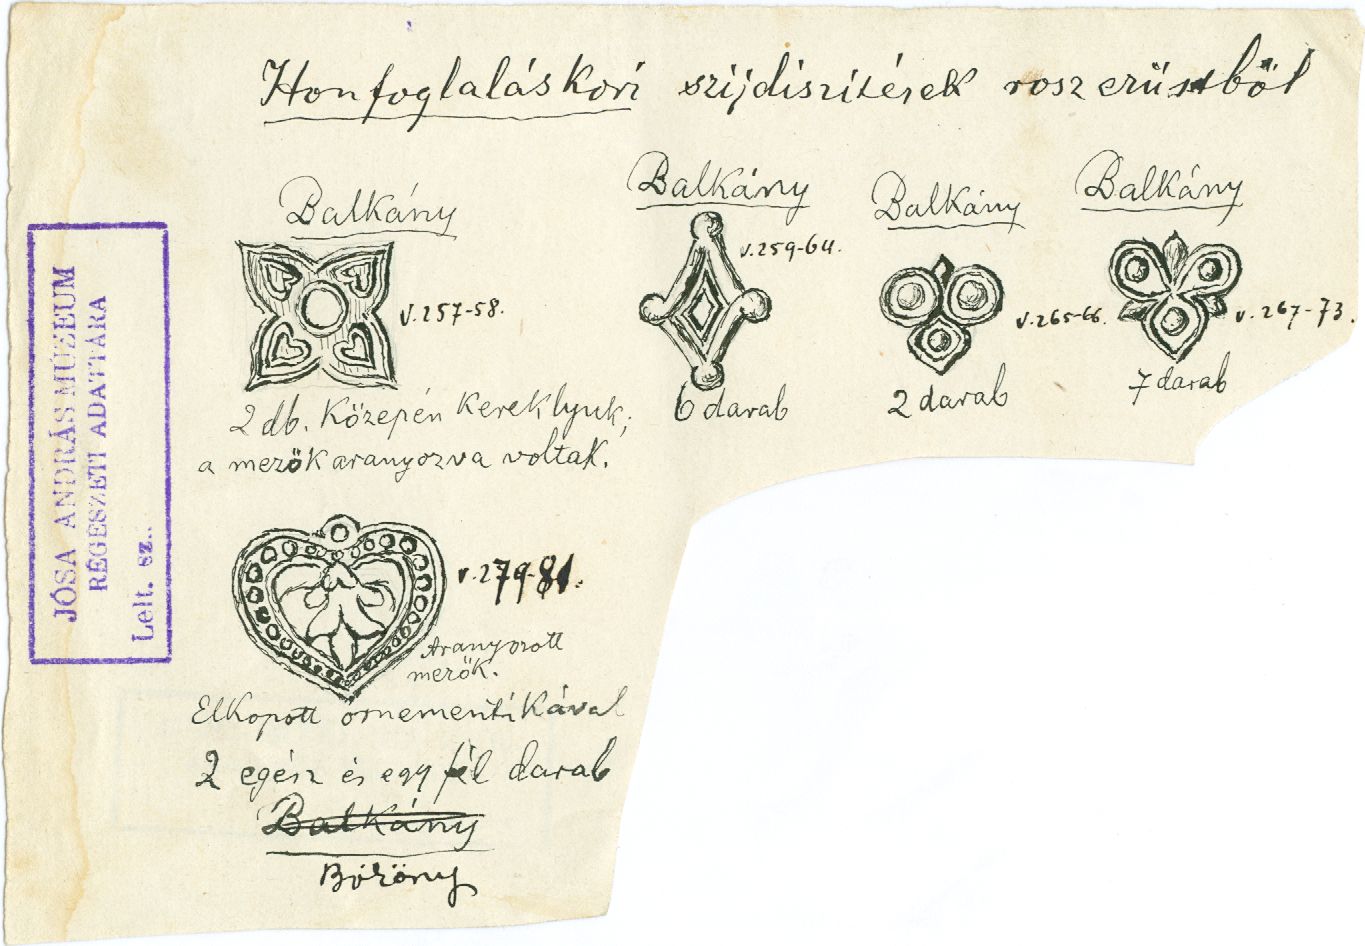 Honfoglaláskori szijdiszitések rosz ezüstből
Balkány
v. 257-58.
2 db. Középén kereklyuk;
a mezők aranyozva voltak.
Balkány
v. 259-64.
6 darab
Balkány
v. 265-66.
2 darab
Balkány
v. 267-73.
7 darab
v. 279-81.
Aranyozott
mezők.
Elkopott ornementikával
2 egész és egy fél darab
Balkány
JÓSA ANDRÁS MÚZEUM
RÉGÉSZETI ADATTÁRA
Lelt. sz..